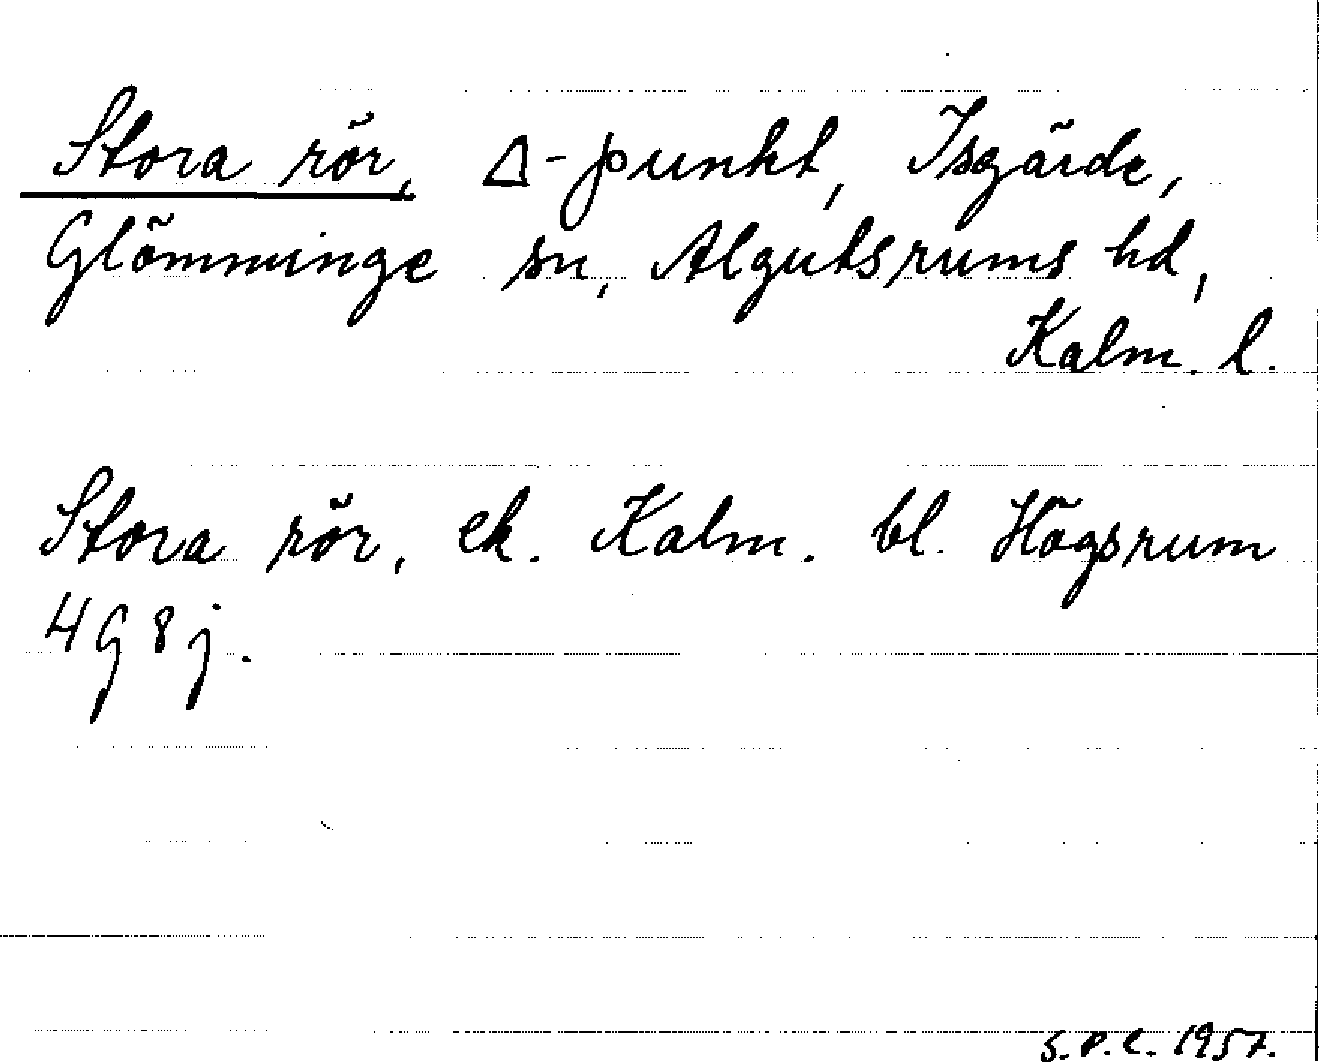 Stora rör, Δ-punkt, Isgärde,
Glömminge sn, Algutsrums hd,
Kalm. l.
Stora rör, ek. Kalm. bl. Högsrum
4G8j.
S.P.C. 1957.